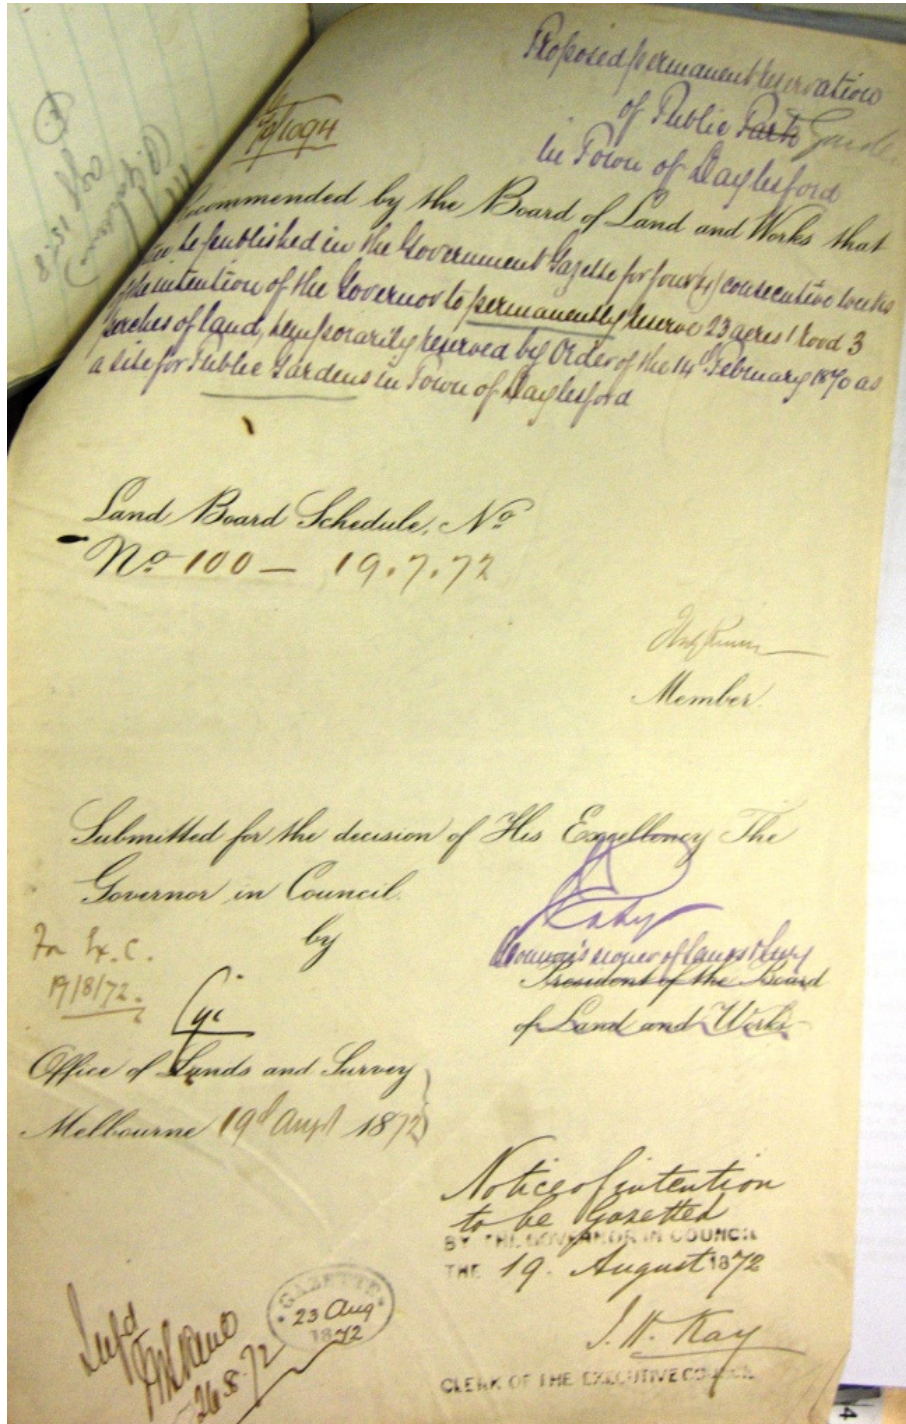 Proposed permanent reservation
of Public Park Garden
in Town of Daylesford
Recommended by the Board of Land and Works that
be published in the Government Gazette for four (4) consecutive weeks
of the intention of the Governor to permanently reserve 23 acres 1 rood 3
perches of land, temporarily reserved by Order of the 14th February 1870 as
a site for Public Gardens in Town of Daylesford
Land Board Schedule, No
No 100 — 19.7.72
Member
Submitted for the decision of His Excellency The
Governor in Council
by
For Ex. C.
19/8/72.
Commissioner of Lands & Survey
President of the Board
of Land and Works
Office of Lands and Survey
Melbourne 19th Augst 1872
Notice of intention
to be Gazetted
BY THE GOVERNOR IN COUNCIL
THE 19. August 1872
J. H. Kay
CLERK OF THE EXECUTIVE COUNCIL
GAZETTE
23 Aug
1872
26.8.72